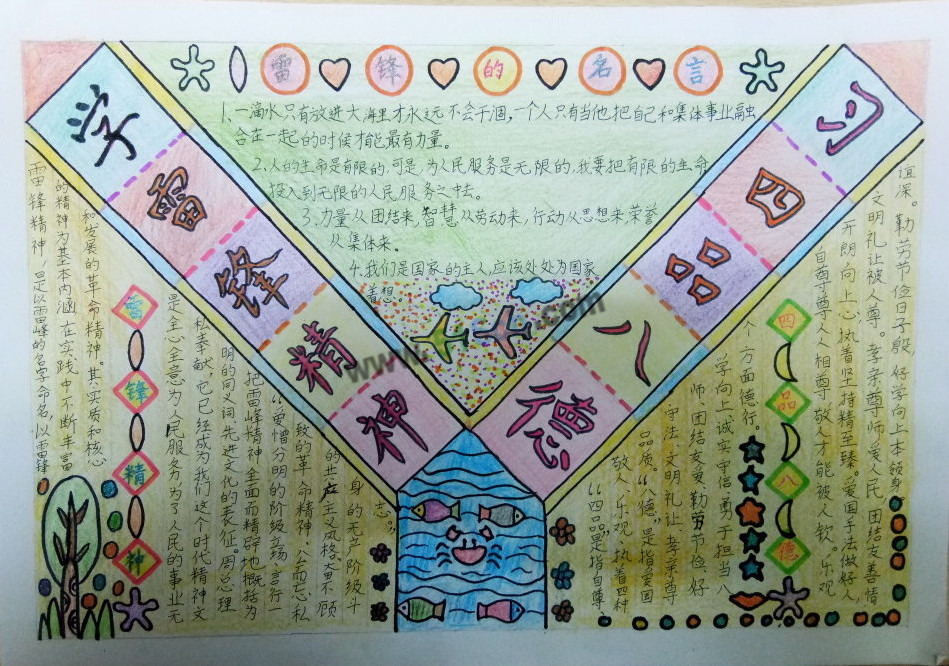 学雷锋精神
习四品八德
雷锋的名言
1、一滴水只有放进大海里才永远不会干涸，一个人只有当他把自己和集体事业融
合在一起的时候才能最有力量。
2、人的生命是有限的，可是，为人民服务是无限的，我要把有限的生命
投入到无限的人民服务之中去。
3、力量从团结来，智慧从劳动来，行动从思想来，荣誉
从集体来。
4、我们是国家的主人，应该处处为国家
着想。
雷锋精神
雷锋精神，是以雷锋的名字命名，以雷锋
的精神为基本内涵，在实践中不断丰富
和发展的革命精神。其实质和核心
是全心全意为人民服务，为了人民的事业无
私奉献。它已经成为我们这个时代精神文
明的同义词、先进文化的表征。周总理
把雷锋精神全面而精辟地概括为
“憎分明的阶级立场、言行一
致的革命精神、公而忘私
的共产主义风格、奋不顾
身的无产阶级斗
志。”
四品八德
“四品”是指自尊、
敬人、乐观、执着四种
品质。“八德”是指爱国
守法、文明礼让、孝亲尊
师、团结友爱、勤劳节俭、好
学向上、诚实守信、勇于担当八
个方面德行。
自尊尊人人相尊，敬人才能被人钦。乐观
开朗向上心，执着坚持精至臻。爱国手法做好人，
文明礼让被人尊。孝亲尊师爱人民，团结友善情
谊深。勤劳节俭日子殷，好学向上本领身
www.
.com